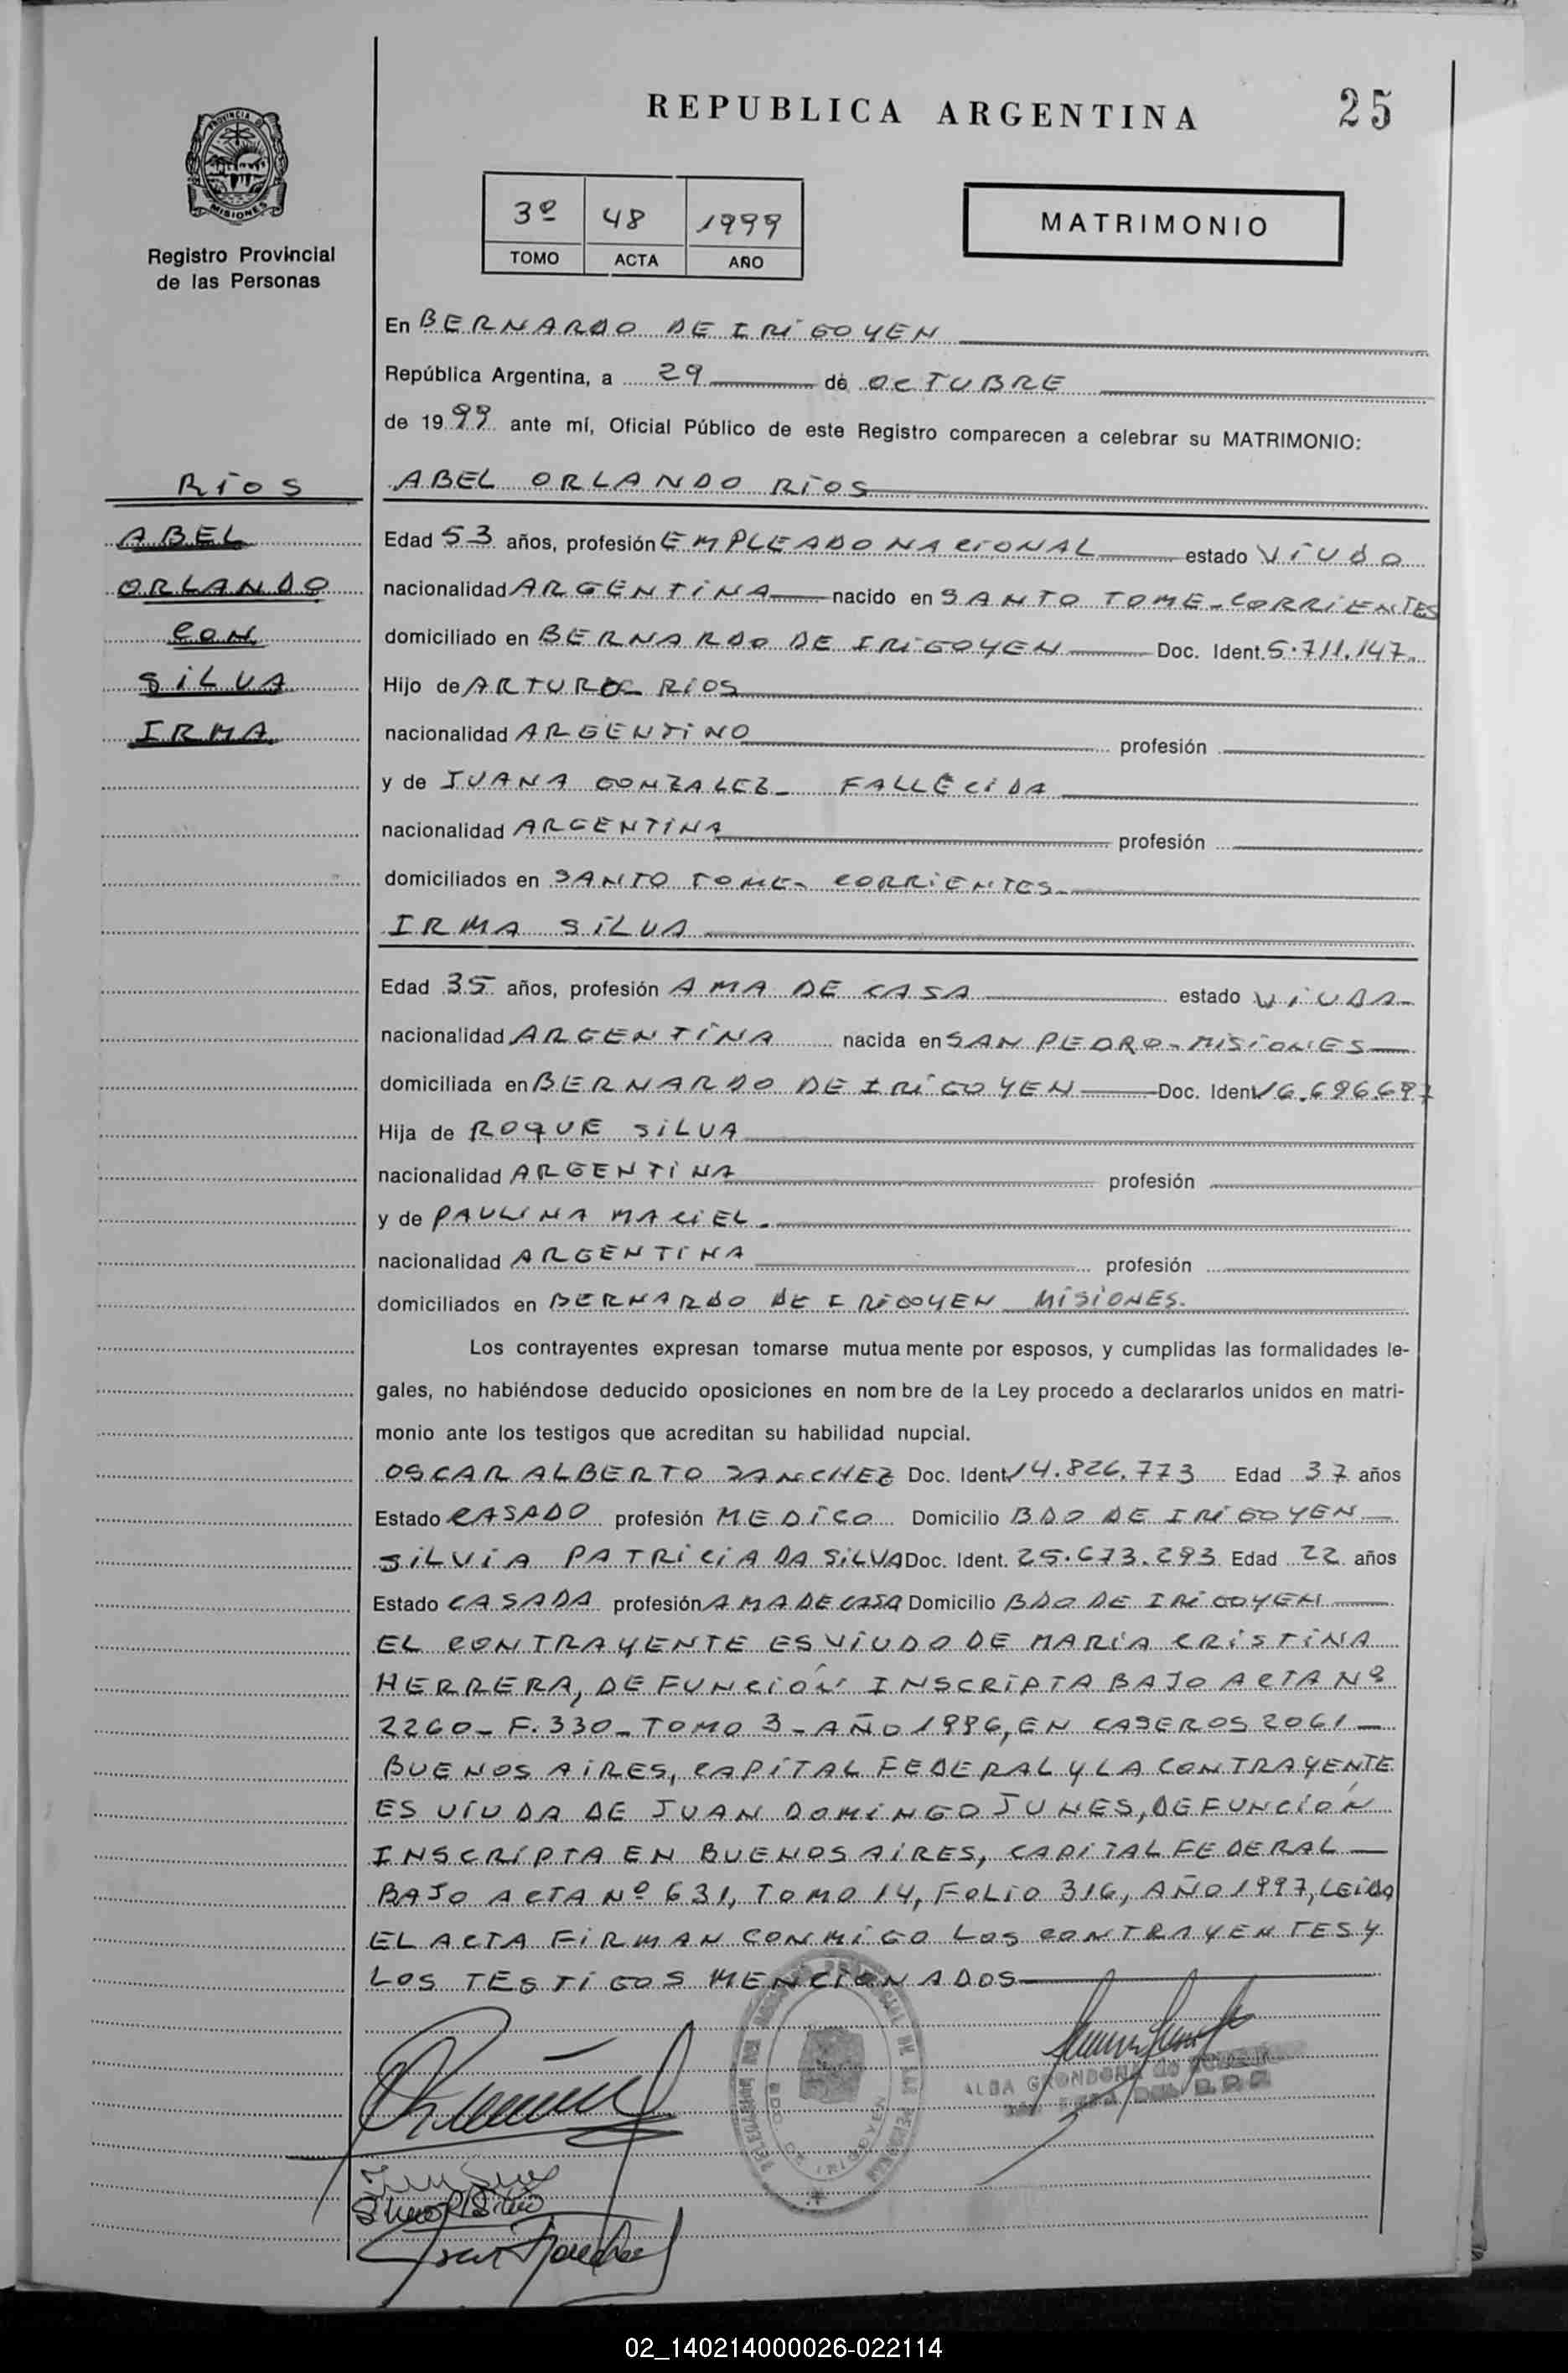 REPUBLICA ARGENTINA
25
PROVINCIA D
MISIONES
Registro Provincial
de las Personas
3º 48 1999
TOMO ACTA AÑO
MATRIMONIO
En BERNARDO DE IRIGOYEN
República Argentina, a 29 de OCTUBRE
de 1999 ante mí, Oficial Público de este Registro comparecen a celebrar su MATRIMONIO:
RIOS
ABEL
ORLANDO
CON
SILVA
IRMA
ABEL ORLANDO RIOS
Edad 53 años, profesión EMPLEADO NACIONAL estado VIUDO
nacionalidad ARGENTINA nacido en SANTO TOME-CORRIENTES
domiciliado en BERNARDO DE IRIGOYEN Doc. Ident. 5.711.147
Hijo de ARTURO RIOS
nacionalidad ARGENTINO profesión
y de JUANA GONZALEZ- FALLECIDA
nacionalidad ARGENTINA profesión
domiciliados en SANTO TOME- CORRIENTES-
IRMA SILVA
Edad 35 años, profesión AMA DE CASA estado VIUDA-
nacionalidad ARGENTINA nacida en SAN PEDRO-MISIONES
domiciliada en BERNARDO DE IRIGOYEN Doc. Ident. 16.696.697
Hija de ROQUE SILVA
nacionalidad ARGENTINA profesión
y de PAULINA MACIEL.
nacionalidad ARGENTINA profesión
domiciliados en BERNARDO DE IRIGOYEN MISIONES.
Los contrayentes expresan tomarse mutua mente por esposos, y cumplidas las formalidades le-
gales, no habiéndose deducido oposiciones en nom bre de la Ley procedo a declararlos unidos en matri-
monio ante los testigos que acreditan su habilidad nupcial.
OSCAR ALBERTO SANCHEZ Doc. Ident. 14.826.773 Edad 37 años
Estado CASADO profesión MEDICO Domicilio BDO DE IRIGOYEN
SILVIA PATRICIA DA SILVA Doc. Ident. 25.673.293 Edad 22 años
Estado CASADA profesión AMA DE CASA Domicilio BDO DE IRIGOYEN
EL CONTRAYENTE ES VIUDO DE MARIA CRISTINA
HERRERA, DEFUNCIÓN INSCRIPTA BAJO ACTA Nº
2260- F.330- TOMO 3- AÑO 1996, EN CASEROS 2061-
BUENOS AIRES, CAPITAL FEDERAL Y LA CONTRAYENTE
ES VIUDA DE JUAN DOMINGO JUNES, DEFUNCIÓN
INSCRIPTA EN BUENOS AIRES, CAPITAL FEDERAL-
BAJO ACTA Nº 631, TOMO 14, FOLIO 316, AÑO 1997, LEIDA
EL ACTA FIRMAN CONMIGO LOS CONTRAYENTES Y
LOS TESTIGOS MENCIONADOS
ALBA GRONDONA de
BDO DE IRIGOYEN
02_140214000026-022114